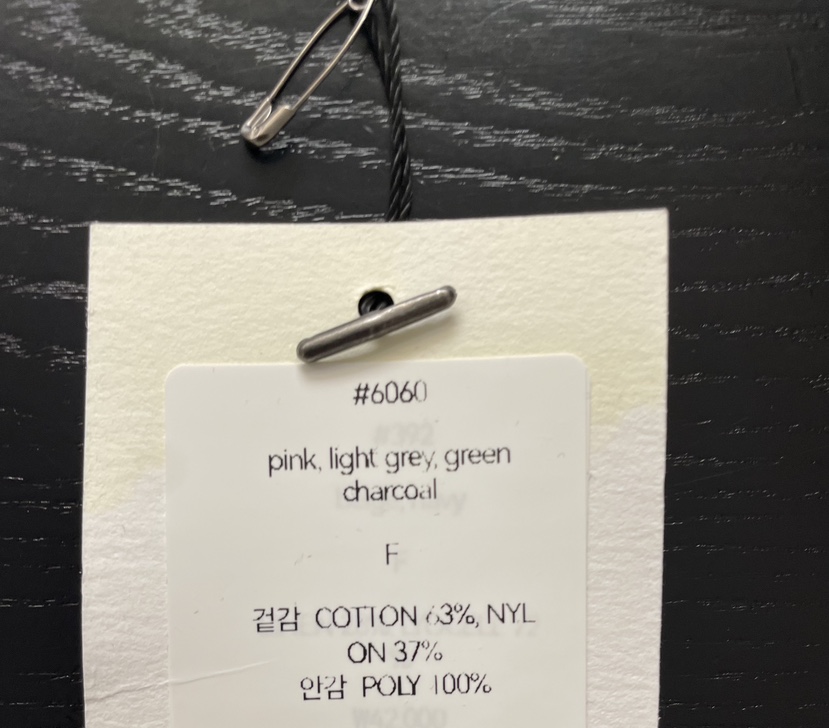 #6060
pink, light grey, green
charcoal
F
겉감 COTION 63%, NYL
ON 37%
안감 POLY 100%